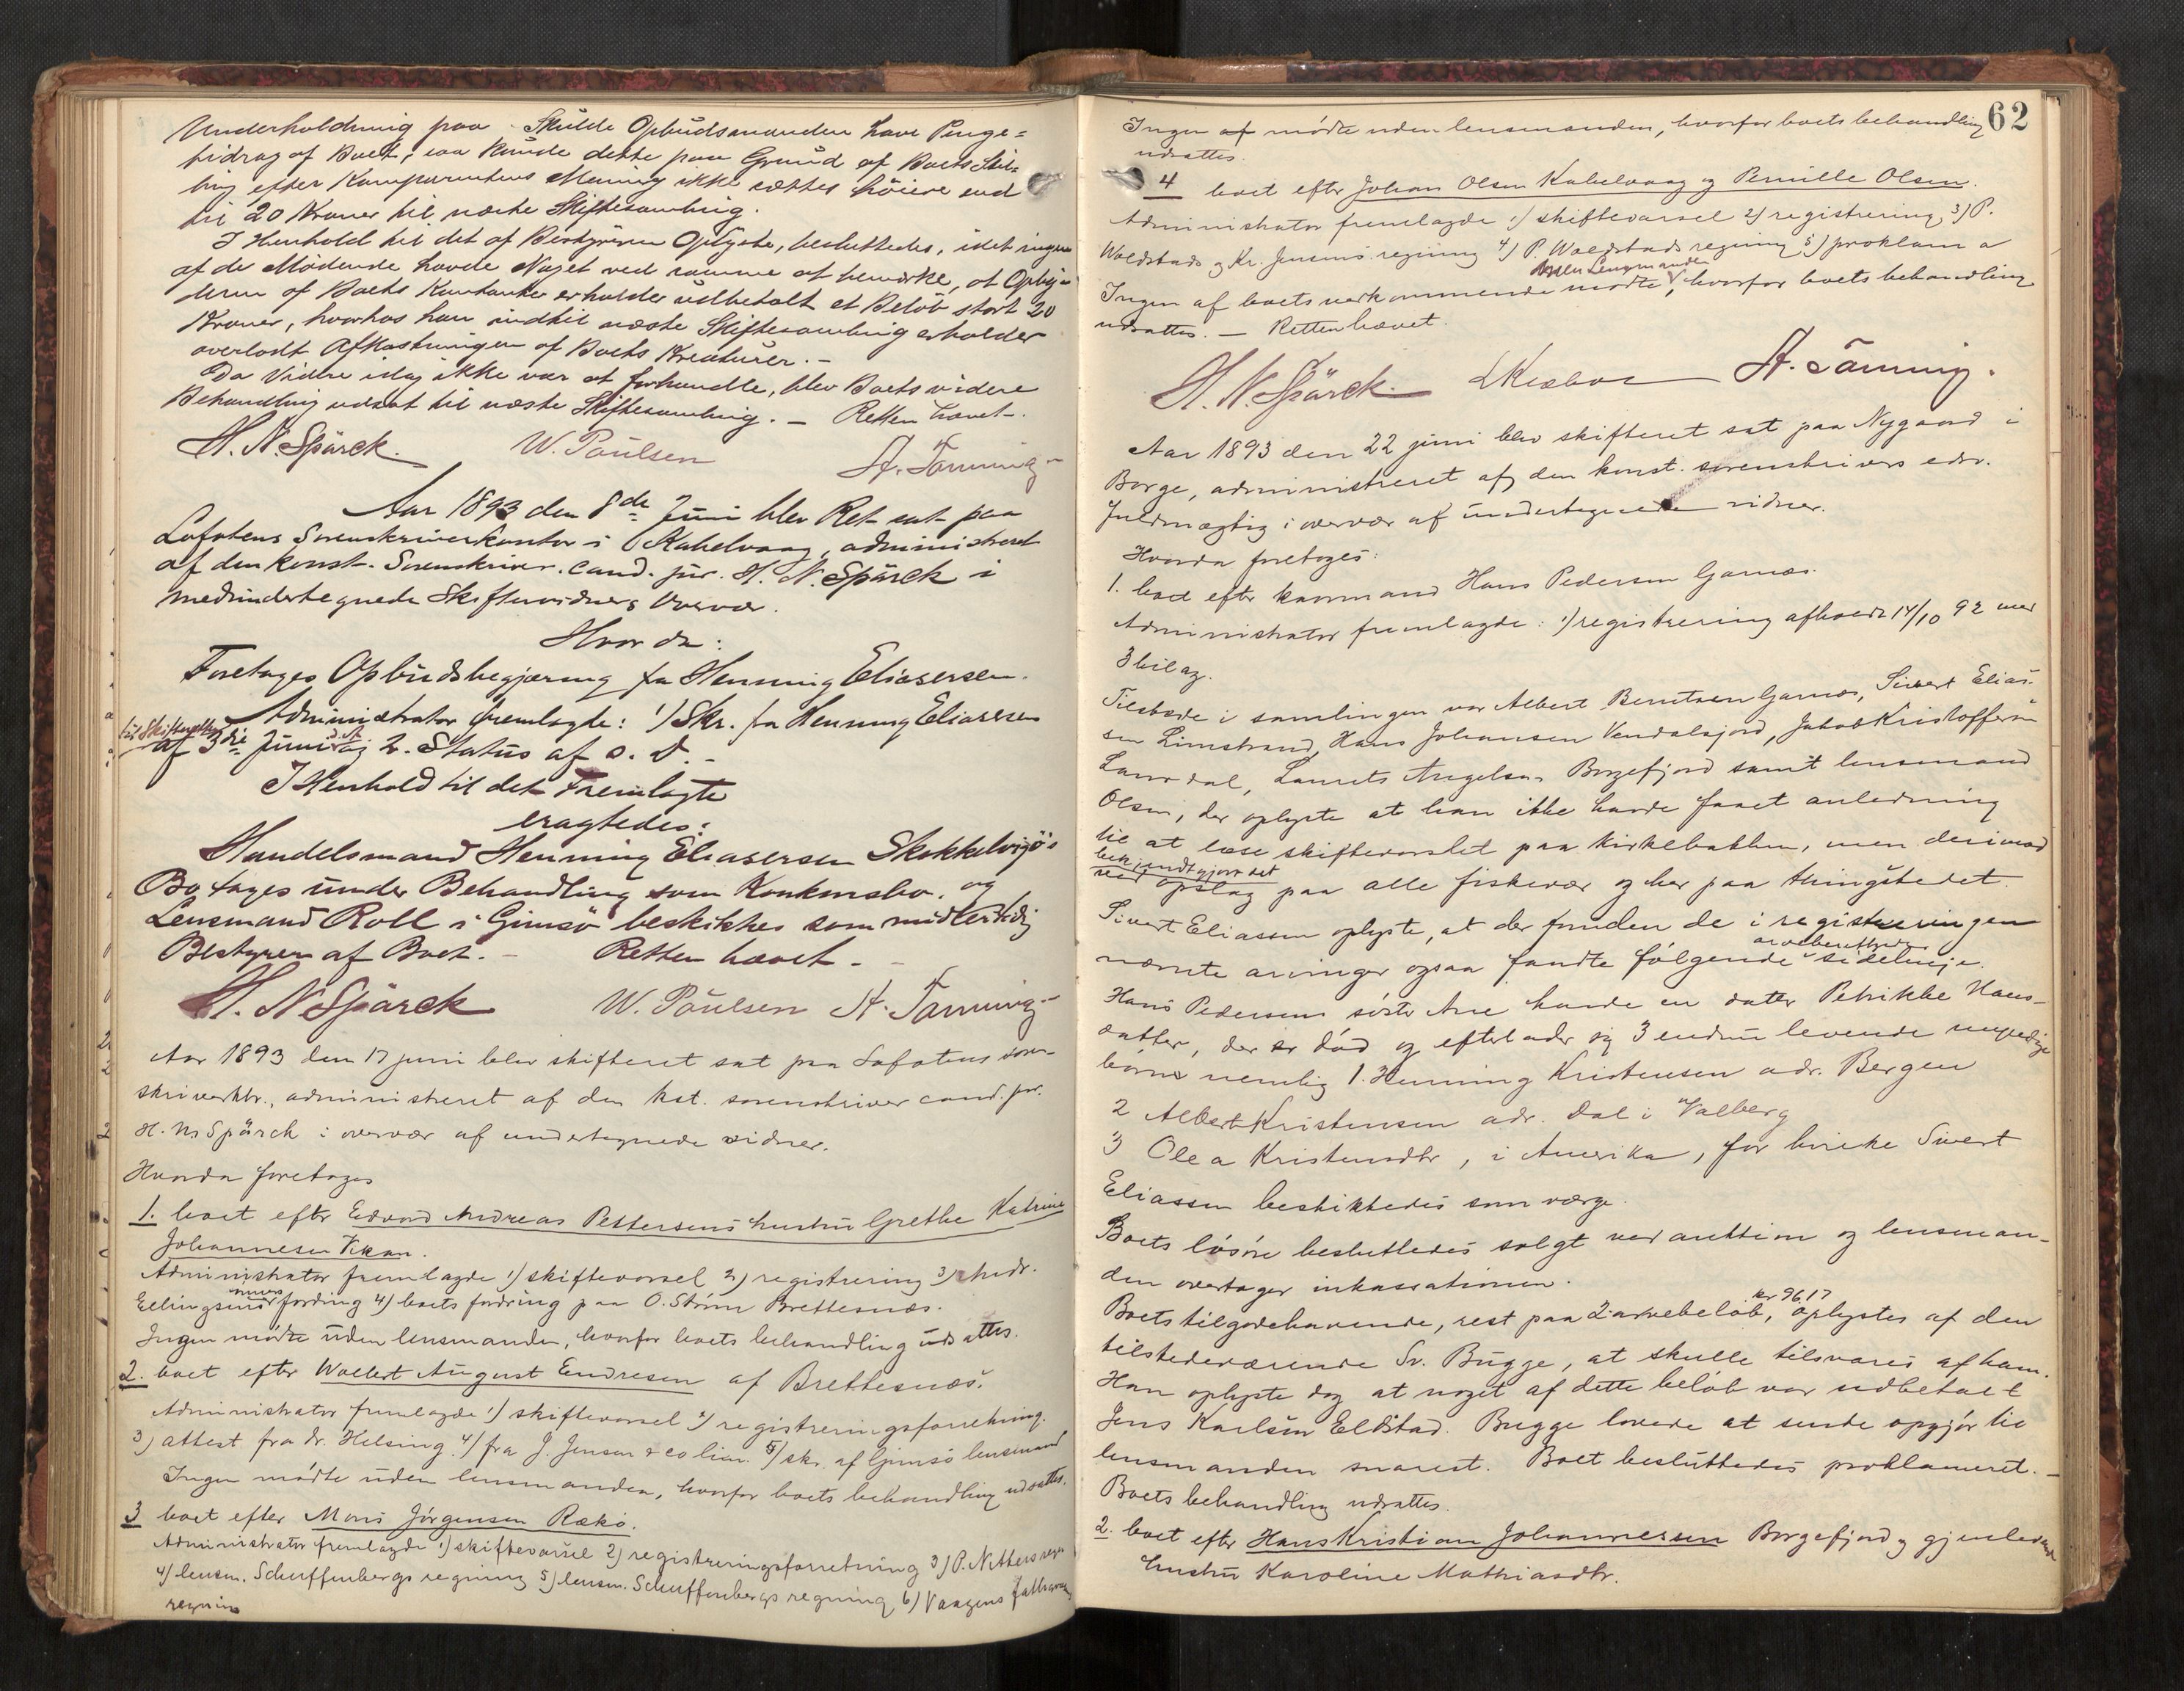 Underholdning paa. Skulde Opbudsmanden have Penge=
bidrag af Boet, saa kunde dette paa Grund af Boets Stil=
ling efter Komparentens Mening ikke sættes høiere end
til 20 Kroner til næste Skiftesamling.
I Henhold til det af Bestyreren Oplyste, besluttedes, idet ingen
af de Mødende havde Noget ved samme at bemærke, at Opby=
deren af Boets Kontanter erholder udbetalt et Beløb stort 20
Kroner, hvorhos han indtil næste Skiftesamling erholder
overladt Afkastningen af Boets Kreaturer. -
Da Videre idag ikke var at forhandle, blev Boets videre
Behandling udsat til næste Skiftesamling. - Retten hævet.
H. N. Spärck. W. Paulsen A. Tanning
Aar 1893 den 8de Juni blev Ret sat paa
Lofotens Sorenskriverkontor i Kabelvaag, administreret
af den konst. Sorenskriver cand. jur. H. N. Spärck i
medundertegnede Skiftevidners Overvær.
Hvorda:
Foretages Opbudsbegjæring fra Henning Eliasersen.
Administrator fremlagde: 1) Skr. fra Henning Eliasersen
til Skifteretten
af 3die Juni d. A. 2. Status af s. D. -
I Henhold til det Fremlagte
eragtedes:
Handelsmand Henning Eliasersen Skokkelvigø's
Bo tages under Behandling som Konkursbo, og
Lensmand Roll i Gimsø beskikkes som midlertidig
Bestyrer af Boet. - Retten hævet. -
H. N. Spärck W. Paulsen A. Tanning
Aar 1893 den 17 juni blev skifteret sat paa Lofotens soren-
skriverktr., administreret af den kst. sorenskriver cand. jur.
H. N. Spärck i overvær af undertegnede vidner.
Hvorda foretages
1. boet efter Edvard Andreas Pettersens hustru Grethe Katrine
Johannesen Vikan.
Administrator fremlagde 1) skiftevarsel 2) registrering 3) Andr.
Ellingsens fordring 4) boets fordring paa O. Strøm Brettesnæs.
Ingen mødte uden lensmanden, hvorfor boets behandling udsattes.
2. boet efter Wolbert August Endresen af Brettesnæs.
Administrator fremlagde 1) skiftevarsel 2) registreringsforretning.
3) attest fra dr. Helsing 4) fra J. Jensen & co 5) skr. af Gimsø lensmand
Ingen mødte uden lensmanden, hvorfor boets behandling udsattes.
3 boet efter Mons Jørgensen Rækø.
Administrator fremlagde 1) skiftevarsel 2) registreringsforretning 3) P.
4) lensm. Scheffenbergs regning 5) lensm. Scheffenbergs regning 6) Vaagens
regning
62
Ingen af mødte uden lensmanden, hvorfor boets behandling
udsattes.
4 boet efter Johan Olsen Kabelvaag og Pernille Olsen.
Administrator fremlagde 1) skiftevarsel 2) registrering 3) P.
Woldstads og Kr. Jensens regning 4) P. Woldstads regning 5) proklama
uden Lensmanden
Ingen af boets vedkommende mødte, hvorfor boets behandling
udsattes. - Retten hævet.
H. N. Spärck. A. Tanning.
Aar 1893 den 22 juni blev skifteret sat paa Nygaard i
Borge, administreret af den konst. sorenskrivers edsv.
fuldmægtig i overvær af undertegnede vidner.
Hvorda foretoges:
1. boet efter kaarmand Hans Pedersen Garnæs.
Administrator fremlagde: 1) registrering afholdt 14/10 92 med
3 bilag.
Tilstede i samlingen var Albert Berntsen Garnæs, Sivert Elias-
sen Limstrand, Hans Johansen Vendalsjord, Jakob Kristoffer-
sen Laurdal, Laurits Angelsen Borgefjord samt lensmand
Olsen, der oplyste at han ikke havde faaet anledning
til at læse skiftevarslet paa kirkebakken, men derimod
bekjendtgjort det
ved opslag paa alle fiskevær og her paa thingstedet.
Sivert Eliassen oplyste, at der foruden de i registreringen
arveberettigede
nævnte arvinger ogsaa fandtes følgende sidelinje.
Hans Pedersens søster Ane havde en datter Petrikke Hans-
datter, der er død og efterlader sig 3 endnu levende umyndige
børn nemlig 1. Henning Kristensen adr. Bergen
2 Albert Kristensen adr. Dal i Valberg
3 Olea Kristensdtr, i Amerika, for hvilke Sivert
Eliassen beskikkedes som værge.
Boets løsøre besluttedes solgt ved auktion og lensman-
den overtager inkassationen.
kr 96,17
Boets tilgodehavende, rest paa 2 arvebeløb, oplystes af den
tilstedeværende Sv. Bugge, at skulle tilsvares af ham.
Han oplyste dog at noget af dette beløb var udbetalt
Jens Karlsen Eldstad. Bugge lovede at sende opgjør til
lensmanden snarest. Boet besluttedes proklameret. -
Boets behandling udsattes.
2. boet efter Hans Kristian Johannessen Borgefjord og gjenlevende
hustru Karoline Mathiasdtr.